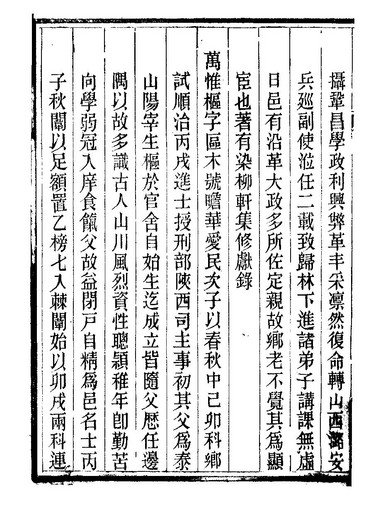 攝鞏昌學政利興弊革丰采凛然復命轉山西潞安
兵廵副使涖任二載致歸林下進諸弟子講課無虛
日邑有沿革大政多所佐定親故鄉老不覺其爲顯
宦也著有染柳軒集修獻錄
萬惟樞字區木號瞻華愛民次子以春秋中己卯科鄉
試順治丙戌進士授刑部陝西司主事初其父爲泰
山陽宰生樞於官舍自始生迄成立皆隨父歷任邊
隅以故多識古人山川風烈資性聰穎稚年卽勤苦
向學弱冠入庠食餼父故益閉戸自精爲邑名士丙
子秋闈以足額置乙榜七入棘闈始以卯戌兩科連